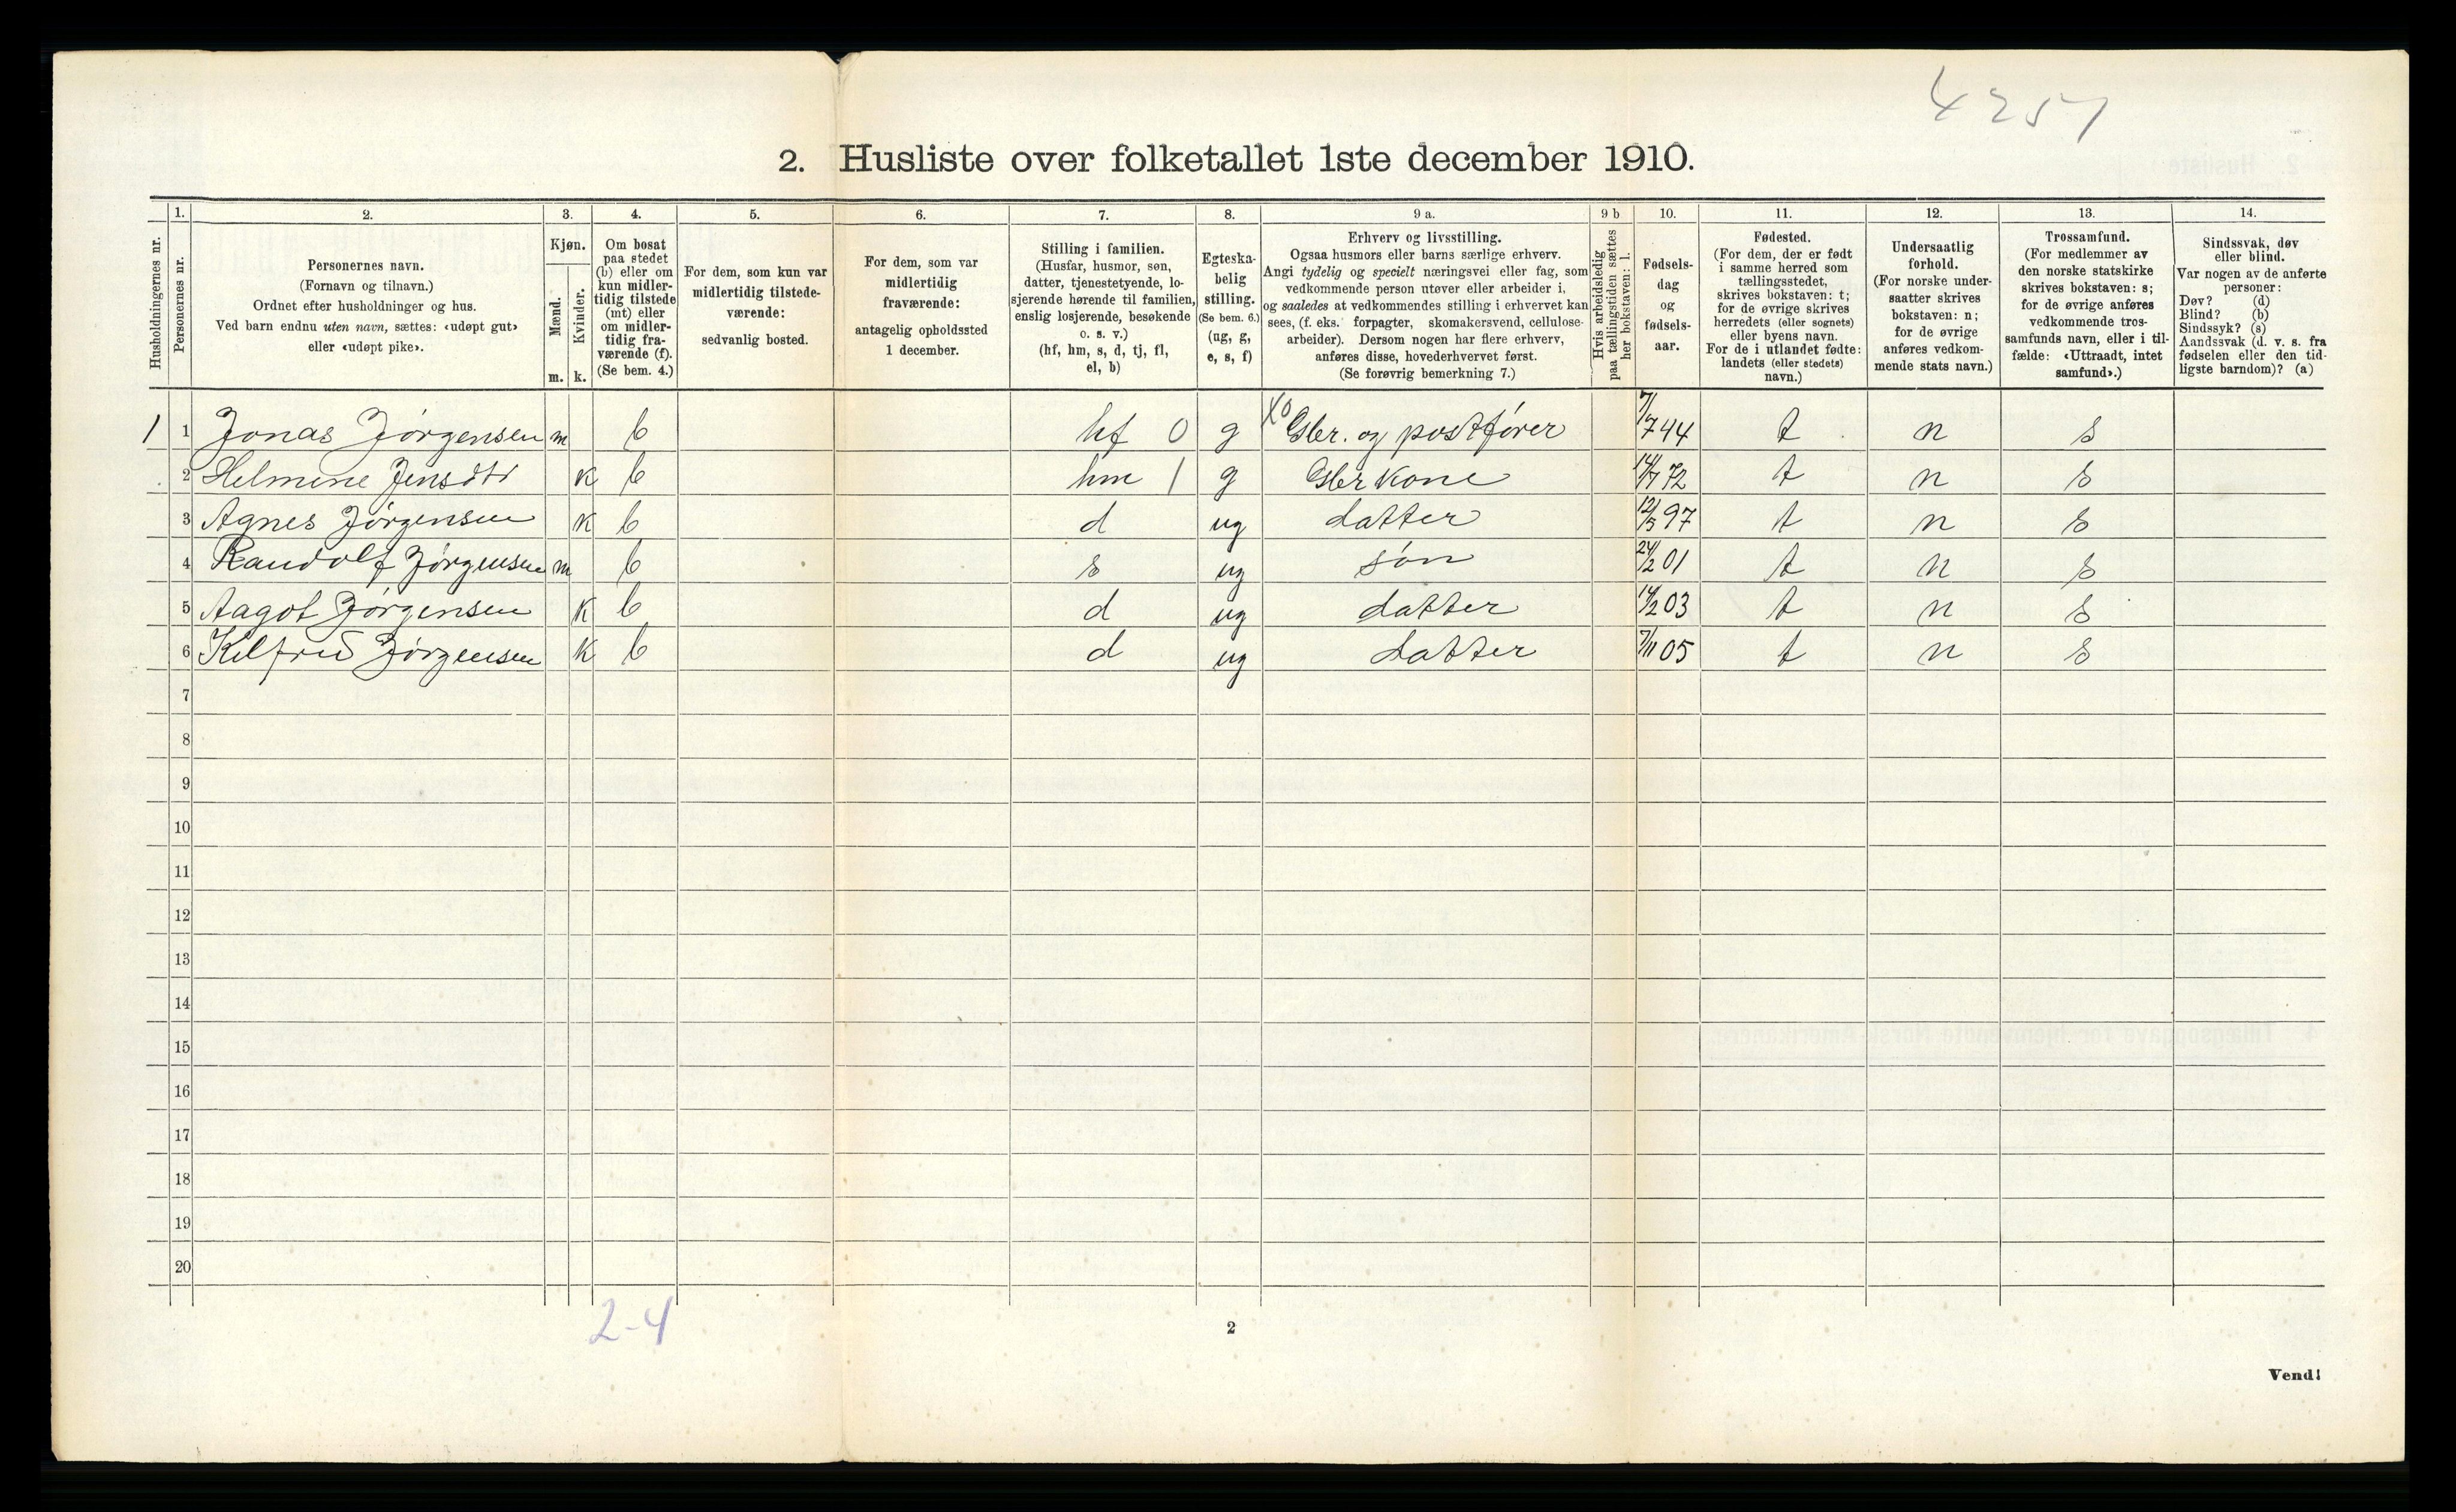 4257
2. Husliste over folketallet 1ste december 1910.
Husholdningernes nr.
1.
Personernes nr.
2.
Personernes navn.
(Fornavn og tilnavn.)
Ordnet efter husholdninger og hus.
Ved barn endnu uten navn, sættes: «udøpt gut»
eller «udøpt pike».
3.
Kjøn.
Mænd.
Kvinder.
m. k.
4.
Om bosat
paa stedet
(b) eller om
kun midler-
tidig tilstede
(mt) eller
om midler-
tidig fra-
værende (f).
(Se bem. 4.)
5.
For dem, som kun var
midlertidig tilstede-
værende:
sedvanlig bosted.
6.
For dem, som var
midlertidig
fraværende:
antagelig opholdssted
1 december.
7.
Stilling i familien.
(Husfar, husmor, søn,
datter, tjenestetyende, lo-
sjerende hørende til familien,
enslig losjerende, besøkende
o. s. v.)
(hf, hm, s, d, tj, fl,
el, b)
8.
Egteska-
belig
stilling.
(Se bem. 6.)
(ug, g,
e, s, f)
9 a.
Erhverv og livsstilling.
Ogsaa husmors eller barns særlige erhverv.
Angi tydelig og specielt næringsvei eller fag, som
vedkommende person utøver eller arbeider i,
og saaledes at vedkommendes stilling i erhvervet kan
sees, (f. eks. forpagter, skomakersvend, cellulose-
arbeider). Dersom nogen har flere erhverv,
anføres disse, hovederhvervet først.
(Se forøvrig bemerkning 7.)
9 b
Hvis arbeidsledig
paa tællingstiden sættes
her bokstaven: l.
10.
Fødsels-
dag
og
fødsels-
aar.
11.
Fødested.
(For dem, der er født
i samme herred som
tællingsstedet,
skrives bokstaven: t;
for de øvrige skrives
herredets (eller sognets)
eller byens navn.
For de i utlandet fødte:
landets (eller stedets)
navn.)
12.
Undersaatlig
forhold.
(For norske under-
saatter skrives
bokstaven: n;
for de øvrige
anføres vedkom-
mende stats navn.)
13.
Trossamfund.
(For medlemmer av
den norske statskirke
skrives bokstaven: s;
for de øvrige anføres
vedkommende tros-
samfunds navn, eller i til-
fælde: «Uttraadt, intet
samfund».)
14.
Sindssvak, døv
eller blind.
Var nogen av de anførte
personer:
Døv? (d)
Blind? (b)
Sindssyk? (s)
Aandssvak (d. v. s. fra
fødselen eller den tid-
ligste barndom)? (a)
1 1 Jonas Jørgensen m b hf 0 g X0 Gbr. og postfører 7/7 44 t n s
2 Helmine Jensdtr k b hm 1 g Gbr kone 14/7 72 t n s
3 Agnes Jørgensen k b d ug datter 12/5 97 t n s
4 Randolf Jørgensen m b s ug søn 24/2 01 t n s
5 Aagot Jørgensen k b d ug datter 14/2 03 t n s
6 Jørgensen k b d ug datter 7/11 05 t n s
7
8
9
10
11
12
13
14
15
16
17
18
19
20
2-4
2
Vend!